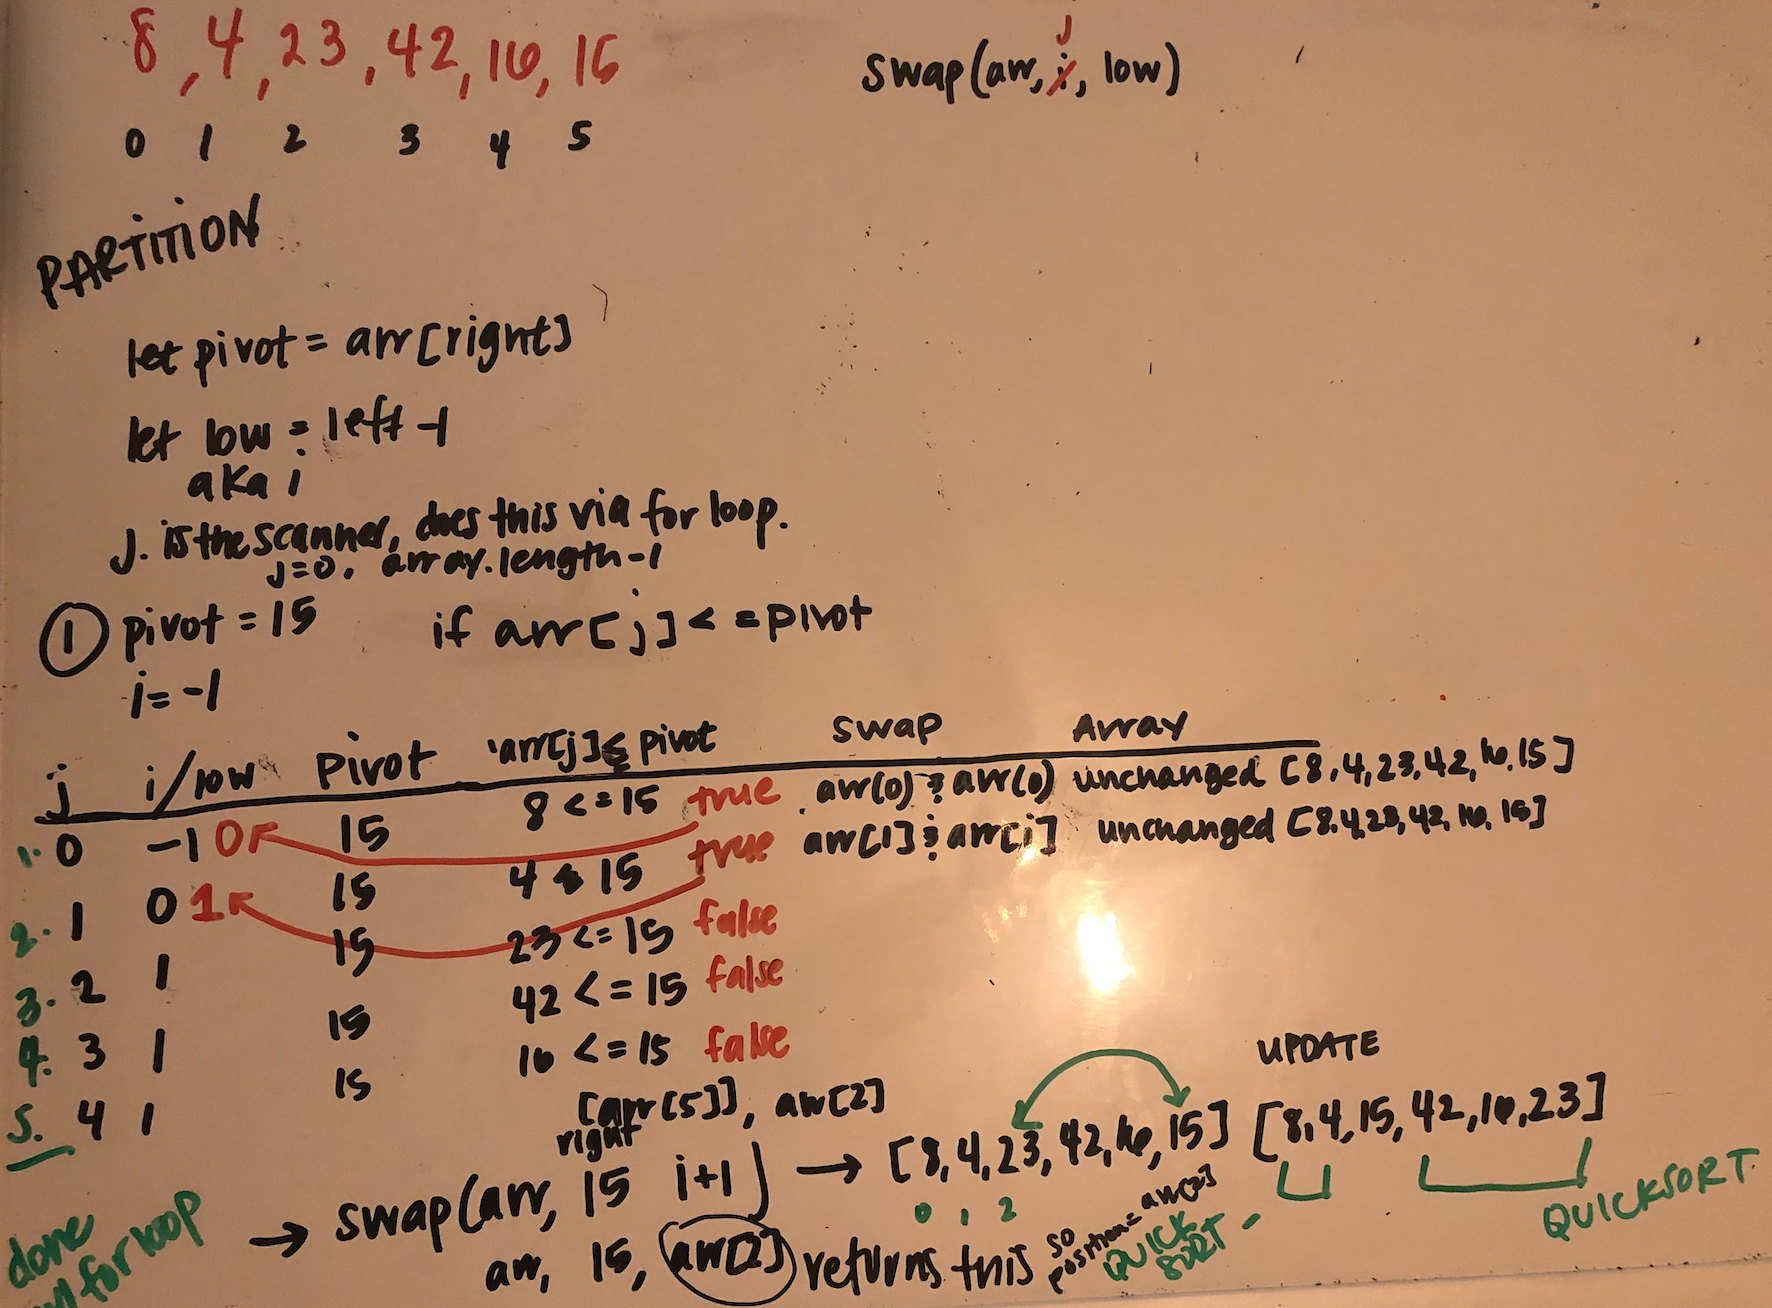 8, 4, 23, 42, 16, 15
0 1 2 3 4 5
J
swap(arr, i, low)
PARTITION
let pivot = arr[right]
let low = left -1
aka i
J. is the scanner, does this via for loop.
J=0, array.length-1
① pivot = 15 if arr[j] <= pivot
i = -1
j i/low Pivot arr[j] ≤ pivot swap Array
1. 0 -1 0 15 8 <= 15 true arr(0) ; arr(0) unchanged [8, 4, 23, 42, 16, 15]
2. 1 0 1 15 4 ≤ 15 true arr[1] ; arr[i] unchanged [8, 4, 23, 42, 16, 15]
3. 2 1 15 23 <= 15 false
4. 3 1 15 42 <= 15 false
5. 4 1 15 16 <= 15 false
[arr[5]], arr[2]
right
UPDATE
→ swap(arr, 15 i+1) → [8, 4, 23, 42, 16, 15] [8, 4, 15, 42, 16, 23]
0 1 2
arr, 15, arr[2] returns this so position = arr[2]
QUICK SORT - QUICKSORT
done
for loop